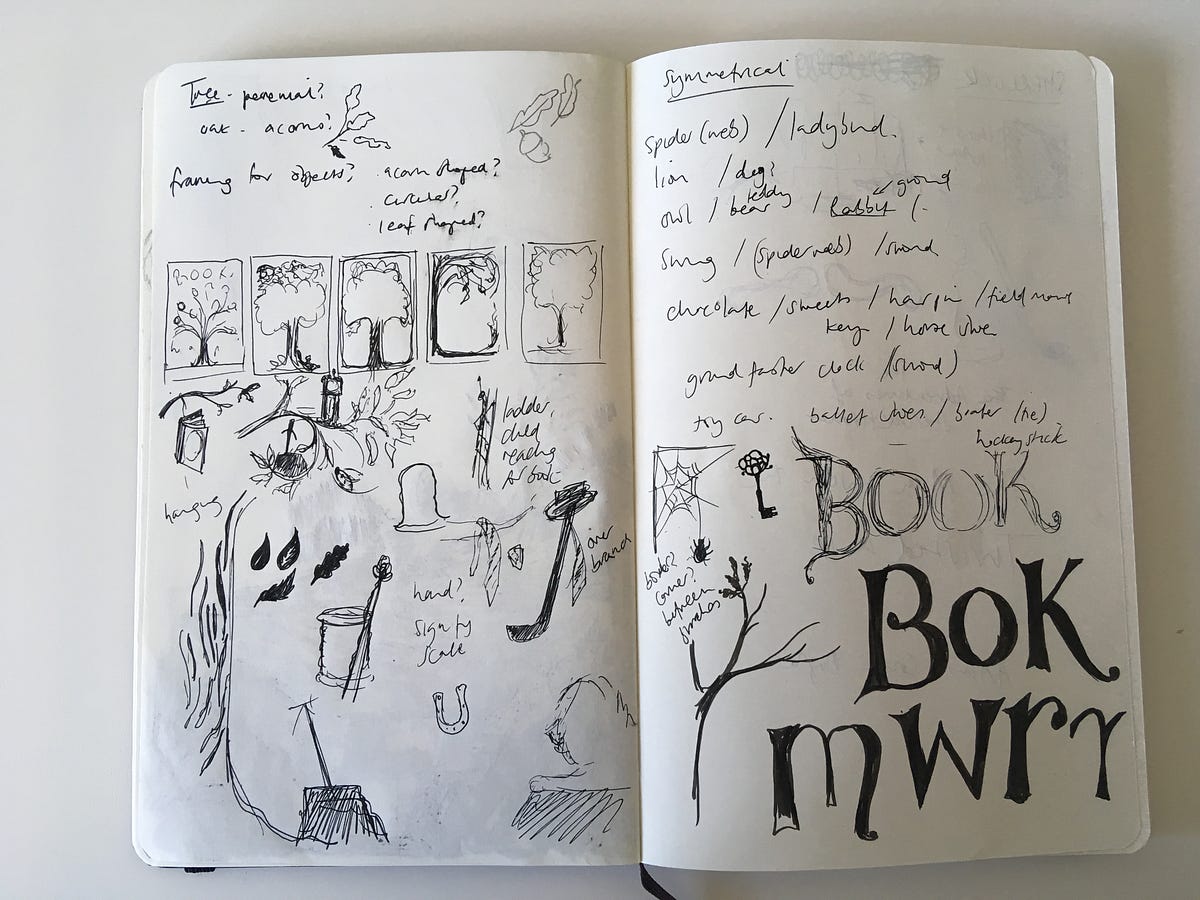 Tree - perennial?
oak - acorns?
framing for objects?
· acorn shaped?
· circular?
· leaf shaped?
BOOK
hanging
ladder,
child
reading
book
over
branch
hand?
signify
scale
Symmetrical
spider (web) / ladybird.
lion / dog?
teddy
ground
owl / bear / Rabbit (-
Swing / (spiderweb) / sword
chocolate / sweets / hairpin / field mouse
key / horse shoe
grand father clock / (sword)
toy car. ballet shoes / boater (tie)
hockey stick
border?
corner?
between
branches
BOOK
BOK
mwrr